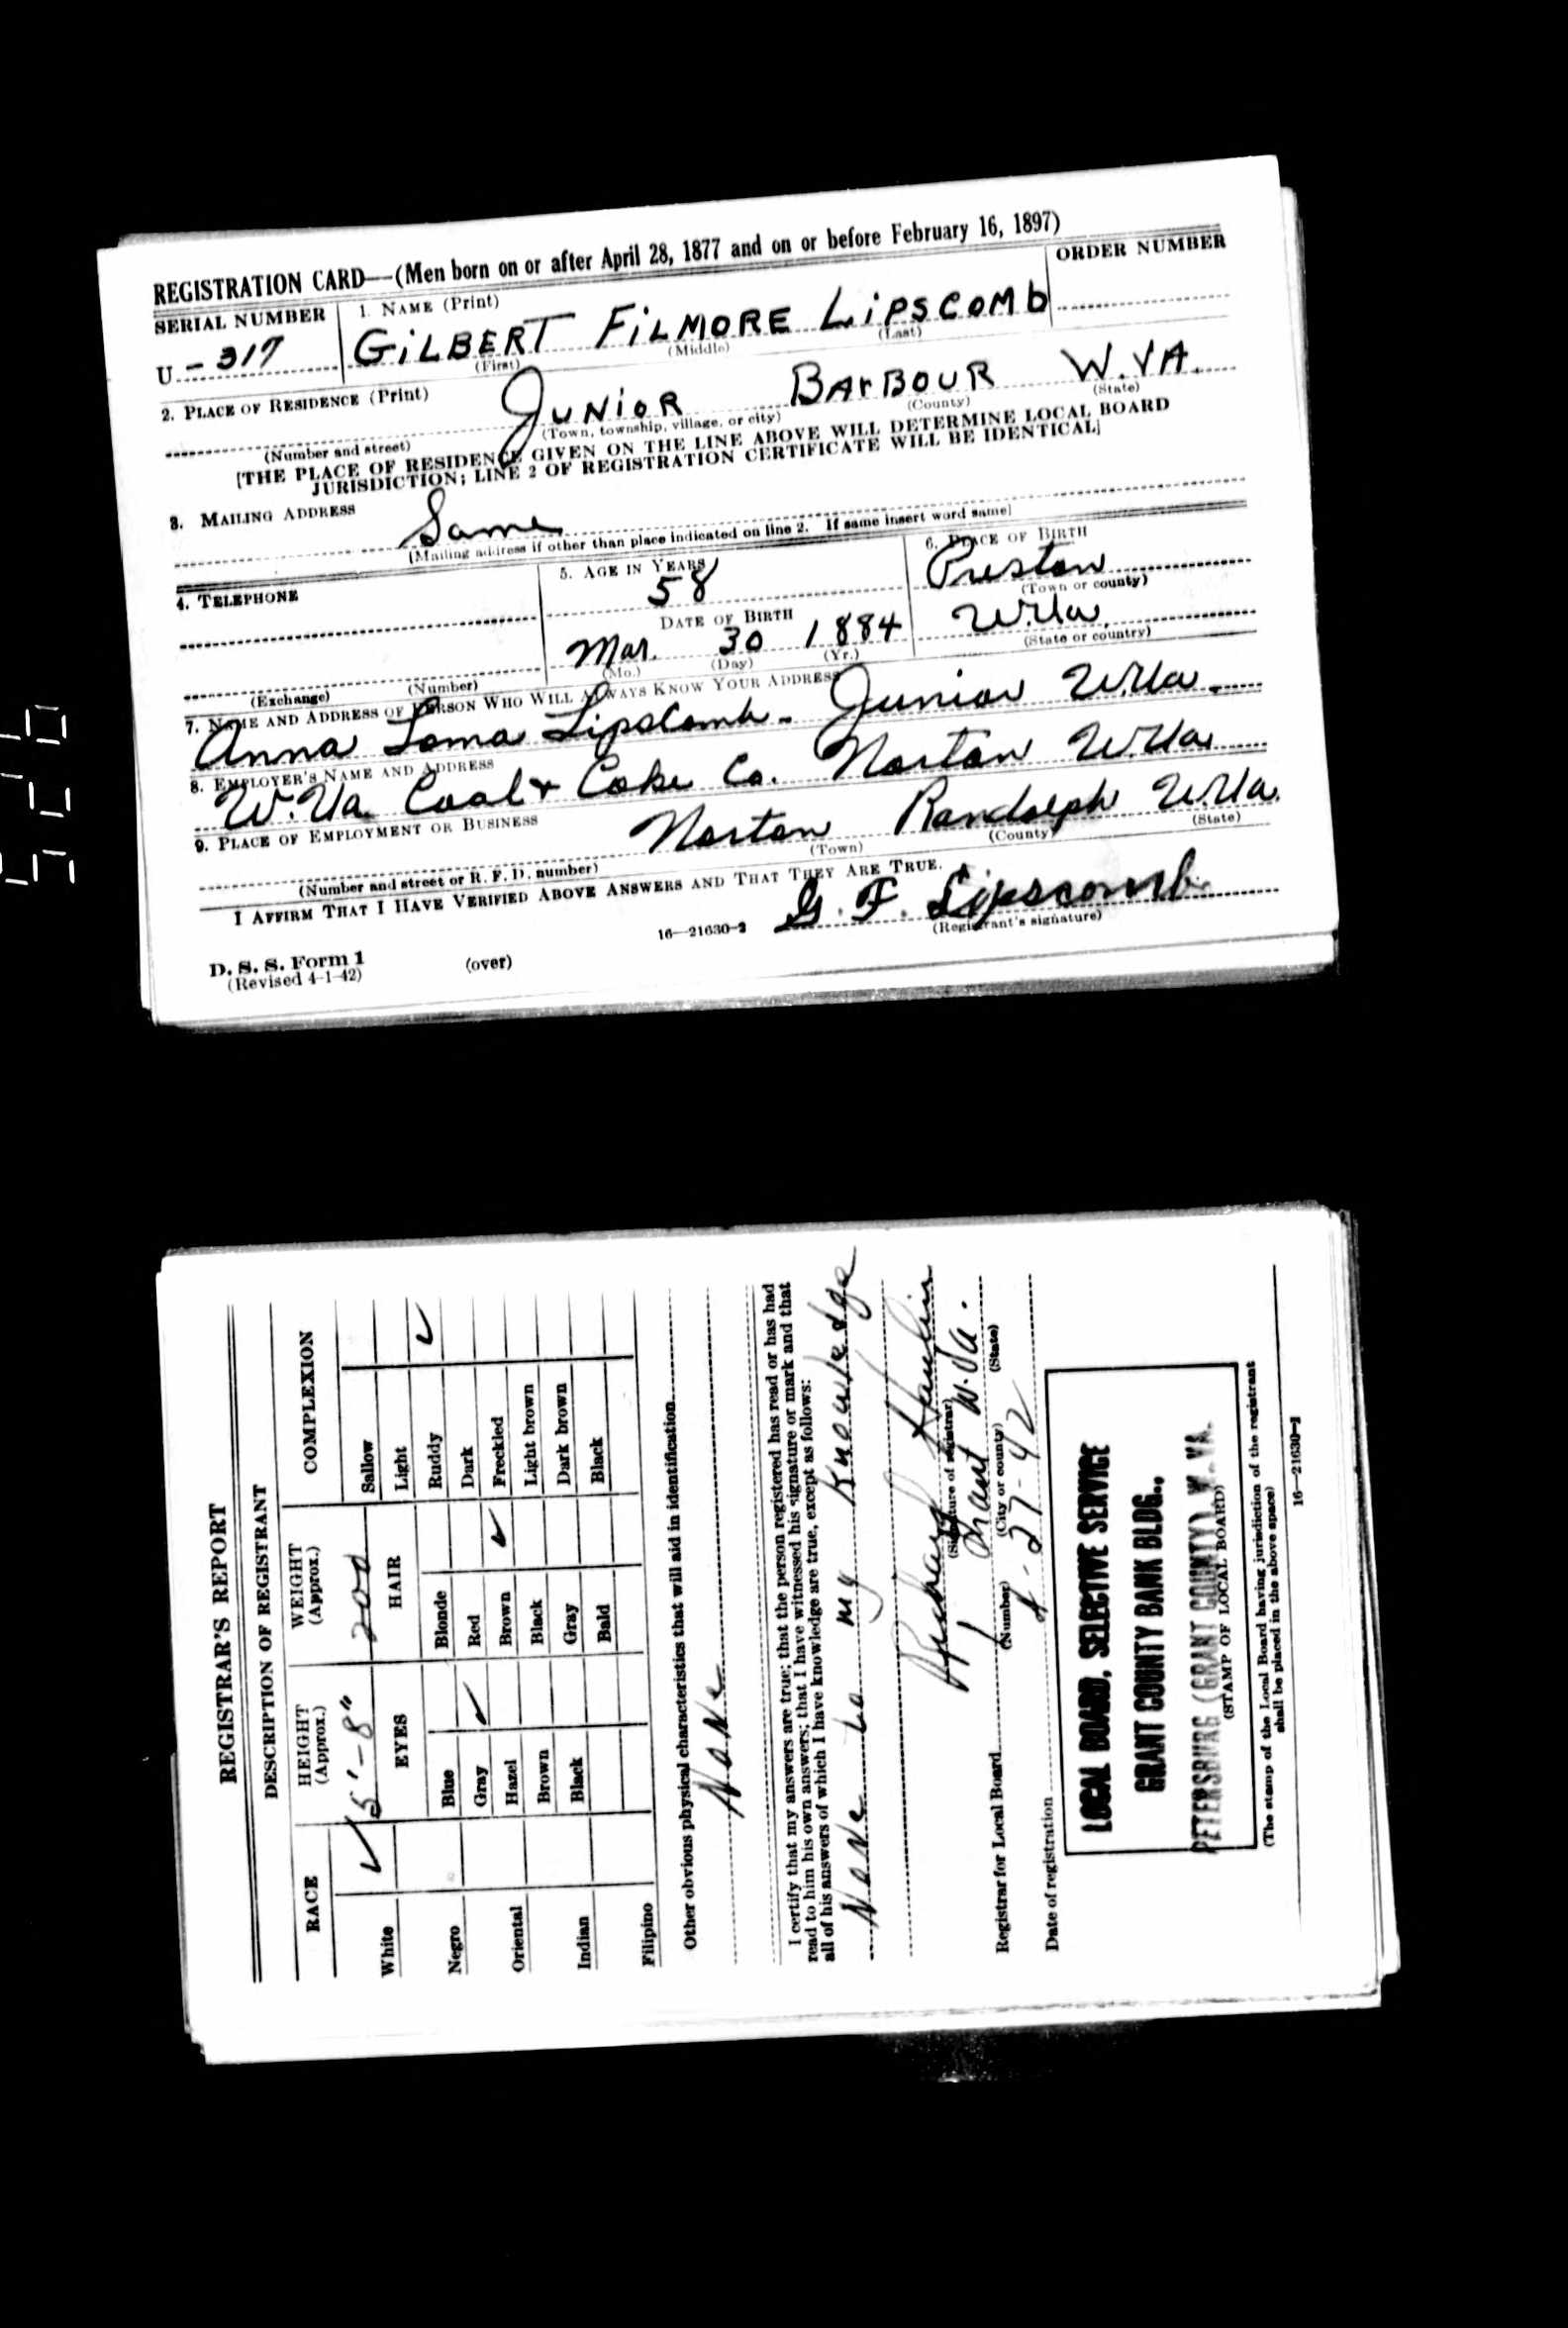 REGISTRATION CARD—(Men born on or after April 28, 1877 and on or before February 16, 1897)
SERIAL NUMBER 1. NAME (Print) ORDER NUMBER
U - 317 GiLBERT FiLMORE LiPSCOMb
(First) (Middle) (Last)
2. PLACE OF RESIDENCE (Print)
JUNiOR BArBOUR W.VA.
(Number and street) (Town, township, village, or city) (County) (State)
[THE PLACE OF RESIDENCE GIVEN ON THE LINE ABOVE WILL DETERMINE LOCAL BOARD
JURISDICTION; LINE 2 OF REGISTRATION CERTIFICATE WILL BE IDENTICAL]
3. MAILING ADDRESS
Same
[Mailing address if other than place indicated on line 2. If same insert word same]
4. TELEPHONE 5. AGE IN YEARS 6. PLACE OF BIRTH
58 Preston
(Town or county)
DATE OF BIRTH
Mar. 30 1884 W.Va.
(Exchange) (Number) (Mo.) (Day) (Yr.) (State or country)
7. NAME AND ADDRESS OF PERSON WHO WILL ALWAYS KNOW YOUR ADDRESS
Anna Loma Lipscomb - Junior W.Va.
8. EMPLOYER'S NAME AND ADDRESS
W. Va. Coal & Coke Co. Norton W.Va.
9. PLACE OF EMPLOYMENT OR BUSINESS
Norton Randolph W.Va.
(Number and street or R. F. D. number) (Town) (County) (State)
I AFFIRM THAT I HAVE VERIFIED ABOVE ANSWERS AND THAT THEY ARE TRUE.
G. F. Lipscomb
D. S. S. Form 1 (Registrant's signature)
(Revised 4-1-42) (over) 16—21630-2
REGISTRAR'S REPORT
DESCRIPTION OF REGISTRANT
RACE HEIGHT (Approx.) WEIGHT (Approx.) COMPLEXION
✓ 5'-8" 200
White EYES HAIR Sallow
Light
Negro Blue Blonde Ruddy ✓
Gray ✓ Red Dark
Oriental Hazel Brown ✓ Freckled
Brown Black Light brown
Indian Black Gray Dark brown
Bald Black
Filipino
Other obvious physical characteristics that will aid in identification
None
I certify that my answers are true; that the person registered has read or has had
read to him his own answers; that I have witnessed his signature or mark and that
all of his answers of which I have knowledge are true, except as follows:
None to my Knowledge
(Signature of registrar)
Registrar for Local Board 1 Grant W. Va.
(Number) (City or county) (State)
Date of registration 4-27-42
LOCAL BOARD, SELECTIVE SERVICE
GRANT COUNTY BANK BLDG.,
PETERSBURG (GRANT COUNTY) W. VA.
(STAMP OF LOCAL BOARD)
(The stamp of the Local Board having jurisdiction of the registrant
shall be placed in the above space)
16—21630-2